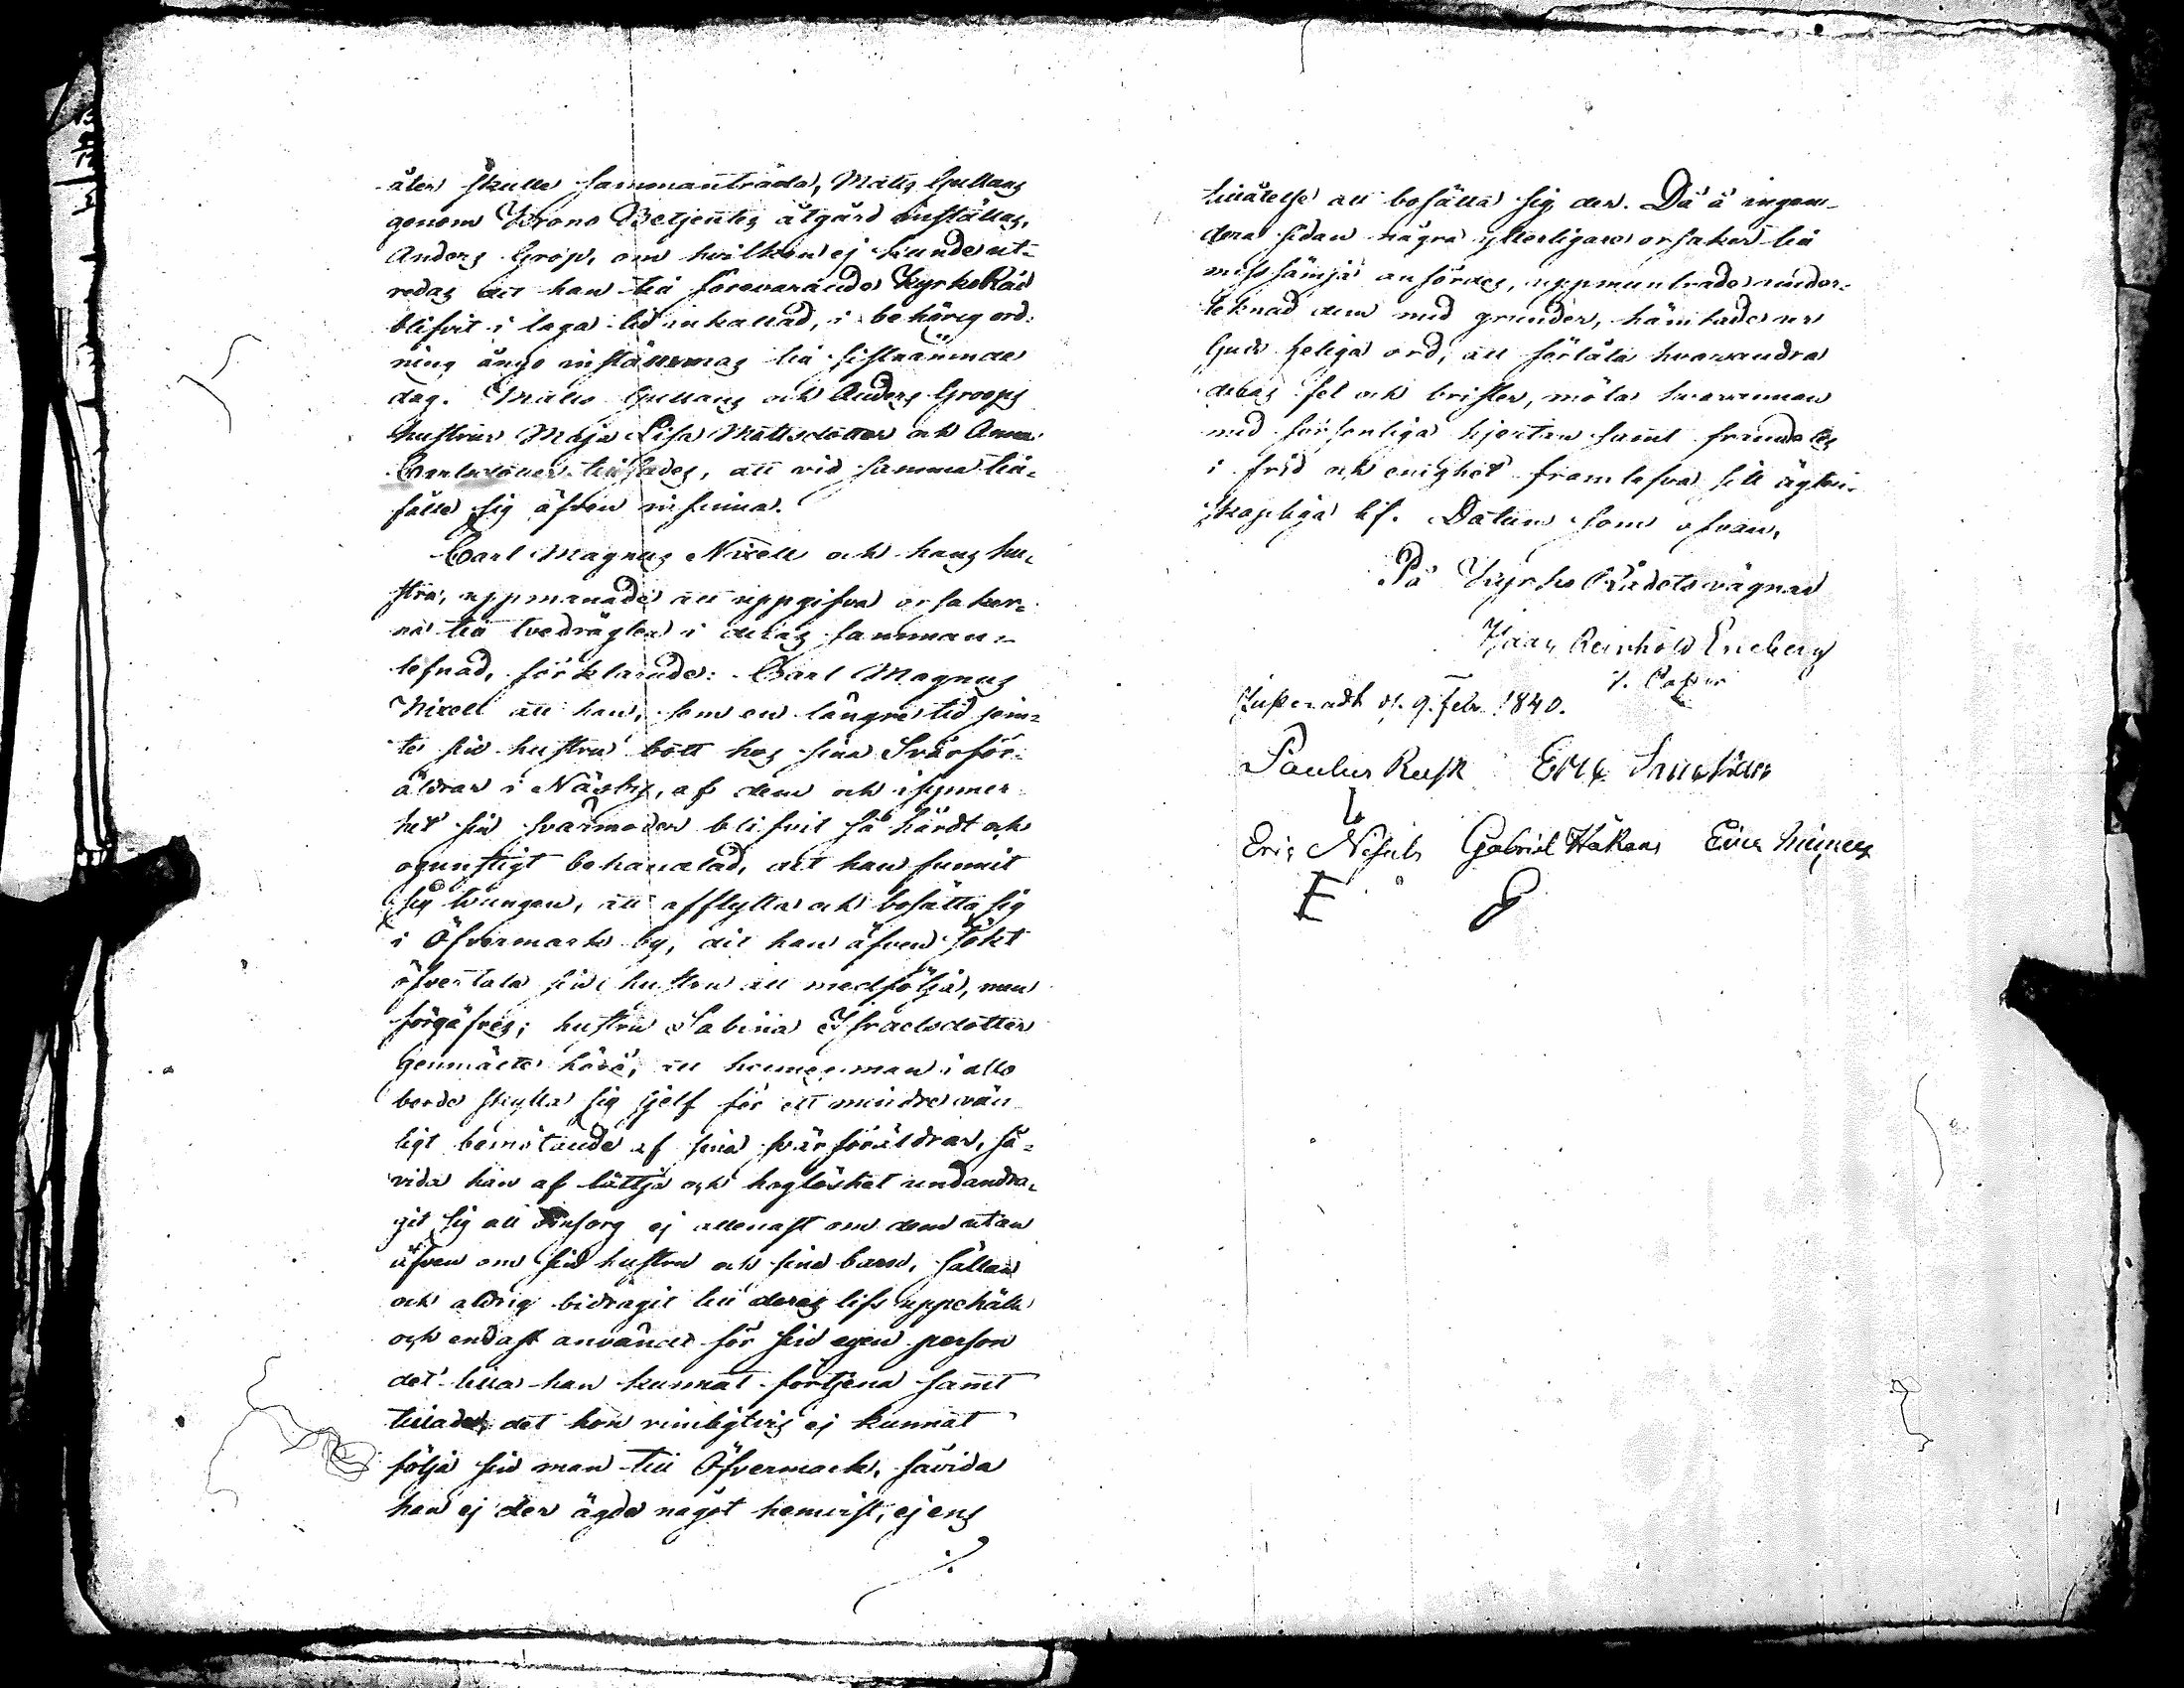 åter skulle sammanträda, Matts Gullans
genom Krono Betjentes åtgärd inställas,
Anders Grop, om hvilken ej kunde ut-
redas att han till förevarande KyrkoRåd
blifvit i laga tid inkallad, i behörig ord-
ning ånyo inställemas till sistnämnde
dag. Matts Gullans och Anders Groops
hustrur Maja Lisa Mattsdotter och Anna
Carlsdotter tillsades, att vid samma till-
fälle sig äfven infinna.
Carl Magnus Nixell och hans hu-
stru, uppmanade att uppgifva orsaker-
na till tvedrägten i deras samman-
lefnad, förklarade: Carl Magnus
Nixell att han, som en längre tid jem-
te sin hustru bott hos sina Svärför-
äldrar i Näsby, af dem och i synner-
het sin svärmoder blifvit så hårdt och
ogunstigt behandlad, att han funnit
sig tvungen, att afflytta och bosätta sig
i Öfvermark by, dit han äfven sökt
öfvertala sin hustru att medfölja, men
förgäfves; hustru Sabina Israelsdotter
genmälte härå, att hennes man i allo
borde skylla sig sjelf för ett mindre vän-
ligt bemötande af sina svärföräldrar, så-
vida han af lättja och hoglöshet undandra-
git sig all omsorg ej allenast om dem utan
äfven om sin hustru och sina barn, sällan
och aldrig bidragit till deras lifs uppehälle
och endast användt för sin egen person
det lilla han kunnat förtjena samt
tillade, det hon rimligtvis ej kunnat
följa sin man till Öfvermark, såvida
han ej der ägde något hemvist, ej ens
./.
tillåtelse att bosätta sig der. Då å ingen-
dera sidan några ytterligare orsaker till
misssämja anfördes, uppmuntrade under-
teknad dem med grunder, hämtade ur
Guds heliga ord, att förlåta hvarandra
deras fel och brister, möta hvarannan
med försonliga hjertan samt framdeles
i frid och enighet framlefva sitt äkten-
skapliga lif. Datum som ofvan,
På KyrkoRådets vägnar
Hans Reinhold Eneberg
V. Pastor
Justeradt d. 9. Febr. 1840.
Paulus Rusk Eric
Eric Nissils Gabriel Håkans Eric
E